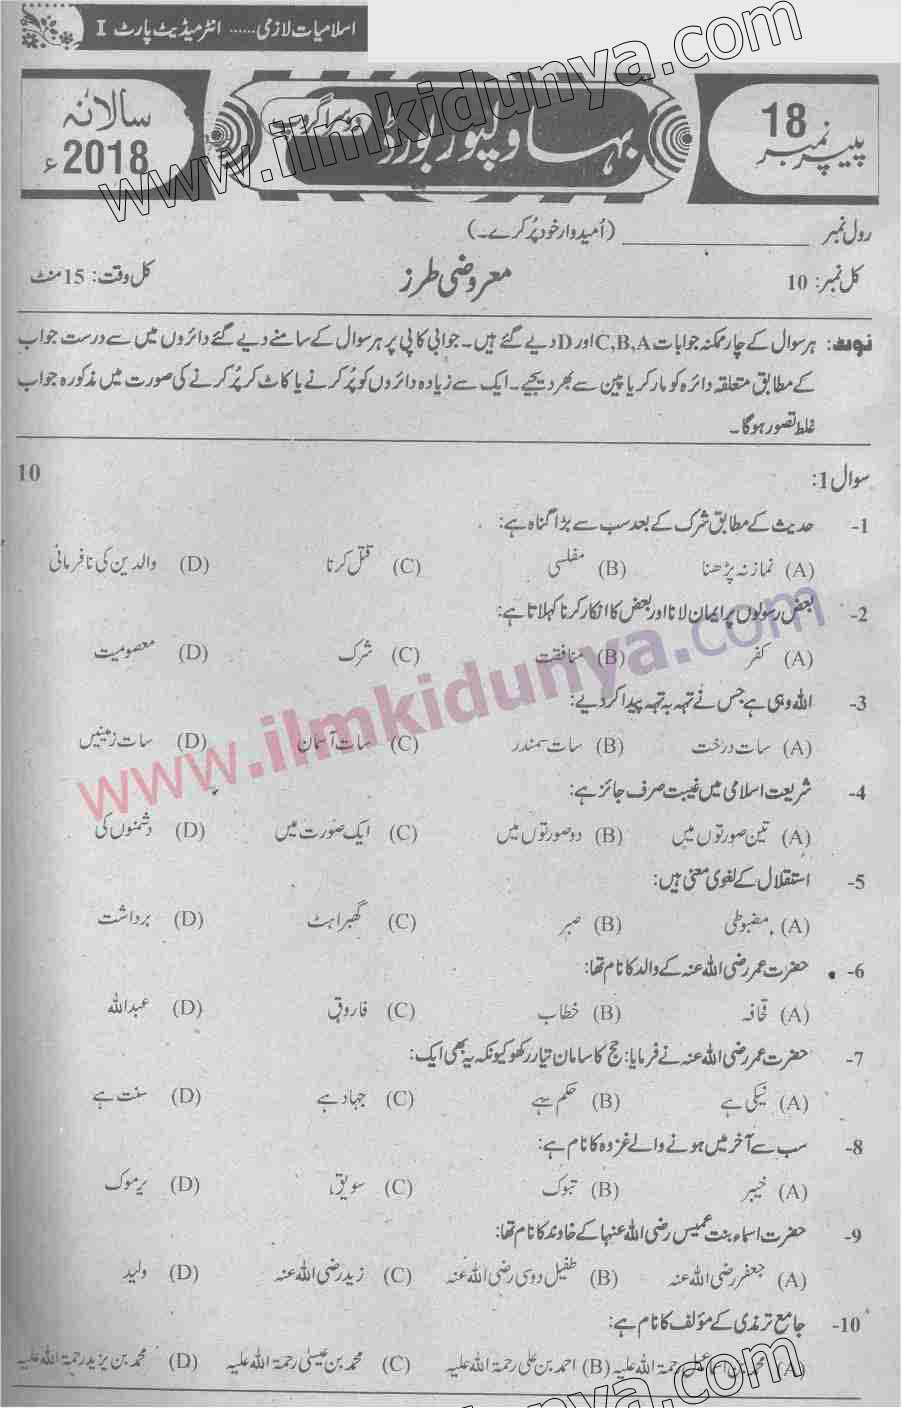 اسلامیات لازمی ...... انٹرمیڈیٹ پارٹ I
پیپر نمبر 18
بہاولپور بورڈ
دوسرا گروپ
سالانہ 2018ء
رول نمبر ________________ (اُمیدوار خود پُر کرے۔)
کل نمبر: 10 معروضی طرز کل وقت: 15 منٹ
نوٹ: ہر سوال کے چار ممکنہ جوابات C,B,A اور D دیے گئے ہیں۔ جوابی کاپی پر ہر سوال کے سامنے دیے گئے دائروں میں سے درست جواب
کے مطابق متعلقہ دائرہ کو مارکر یا پین سے بھر دیجیے۔ ایک سے زیادہ دائروں کو پُر کرنے یا کاٹ کر پُر کرنے کی صورت میں مذکورہ جواب
غلط تصور ہوگا۔
سوال 1: 10
1- حدیث کے مطابق شرک کے بعد سب سے بڑا گناہ ہے:
(A) نماز نہ پڑھنا (B) مفلسی (C) قتل کرنا (D) والدین کی نافرمانی
2- بعض رسولوں پر ایمان لانا اور بعض کا انکار کرنا کہلاتا ہے:
(A) کفر (B) منافقت (C) شرک (D) معصومیت
3- اللہ وہی ہے جس نے تہہ بہ تہہ پیدا کر دیے:
(A) سات درخت (B) سات سمندر (C) سات آسمان (D) سات زمینیں
4- شریعت اسلامی میں غیبت صرف جائز ہے:
(A) تین صورتوں میں (B) دو صورتوں میں (C) ایک صورت میں (D) دشمنوں کی
5- استقلال کے لغوی معنی ہیں:
(A) مضبوطی (B) صبر (C) گھبراہٹ (D) برداشت
6- حضرت عمر رضی اللہ عنہ کے والد کا نام تھا:
(A) قحافہ (B) خطاب (C) فاروق (D) عبداللہ
7- حضرت عمر رضی اللہ عنہ نے فرمایا: حج کا سامان تیار رکھو کیونکہ یہ بھی ایک:
(A) نیکی ہے (B) حکم ہے (C) جہاد ہے (D) سنت ہے
8- سب سے آخر میں ہونے والے غزوہ کا نام ہے:
(A) خیبر (B) تبوک (C) سویق (D) یرموک
9- حضرت اسماء بنت عمیس رضی اللہ عنہا کے خاوند کا نام تھا:
(A) جعفر رضی اللہ عنہ (B) طفیل دوسی رضی اللہ عنہ (C) زید رضی اللہ عنہ (D) ولید
10- جامع ترمذی کے مؤلف کا نام ہے:
(A) محمد بن اسماعیل رحمۃ اللہ علیہ (B) احمد بن علی رحمۃ اللہ علیہ (C) محمد بن عیسیٰ رحمۃ اللہ علیہ (D) محمد بن یزید رحمۃ اللہ علیہ
www.ilmkidunya.com
www.ilmkidunya.com
www.ilmkidunya.com